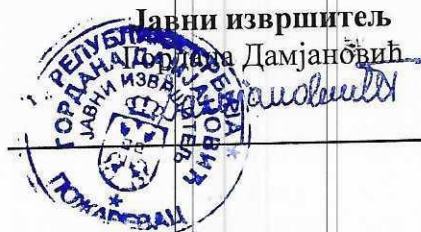 Јавни извршитељ
Гордана Дамјановић
РЕПУБЛИКА СРБИЈА
ГОРДАНА ДАМЈАНОВИЋ
ЈАВНИ ИЗВРШИТЕЉ
ПОЖАРЕВАЦ